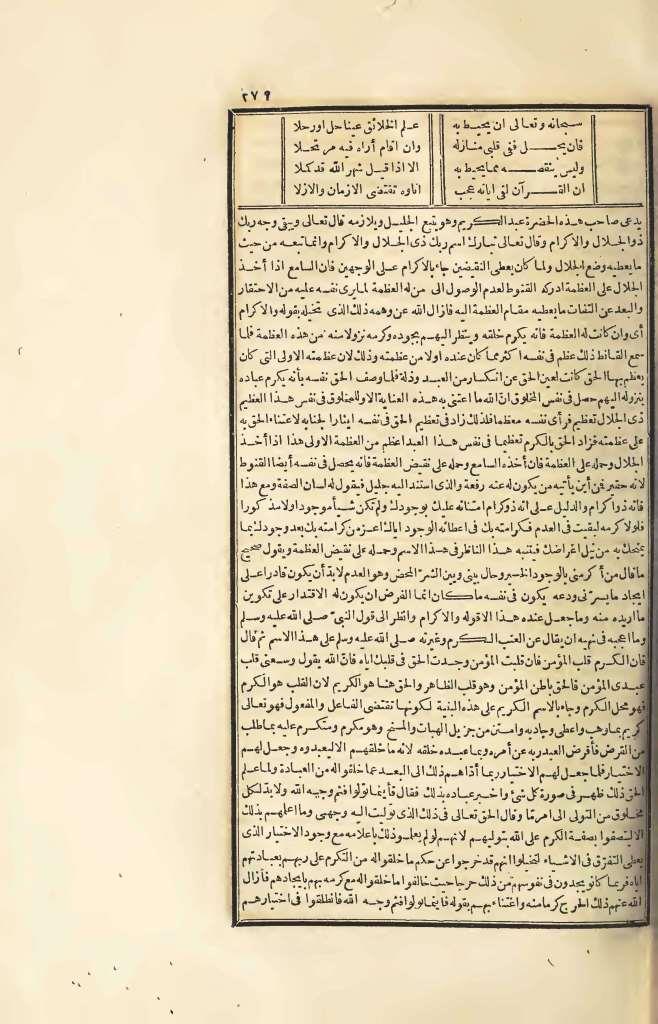 ٢٧٩
سبحانه وتعالى ان يحيط به علم الخلائق عينا حل اورحلا
فان يحل ففى قلبى منازله وان اقام أراه فيه مرتحلا
وليس ينقصه مما يحيط به الا اذا قيل شهر الله قد كملا
ان القرآن لفى اياته عجب اناوه تقتضى الازمان والازلا
يدعى صاحب هذه الحضرة عبد الكريم وهو يتبع الجليل ويلازمه قال تعالى ويبقى وجه ربك
ذو الجلال والاكرام وقال تعالى تبارك اسم ربك ذى الجلال والاكرام وانما تبعه من حيث
ما يعطيه وضع الجلال ولما كان يعطى النقيضين جاء بالاكرام على الوجهين فان السامع اذا أخذ
الجلال على العظمة ادركه القنوط لعدم الوصول الى من له العظمة لما يرى نفسه عليه من الاحتقار
والبعد عن التفات ما يعطيه مقام العظمة اليه فازال الله عن وهمه ذلك الذى تخيله بقوله والاكرام
أى وان كانت له العظمة فانه يكرم خلقه وينظر اليهم بجوده وكرمه نزولا منه من هذه العظمة فلما
سمع القانط ذلك عظم فى نفسه اكثر مما كان عنده اولا من عظمته وذلك لان عظمته الاولى التى كان
يعظم بها الحق كانت لعين الحق عن انكسار من العبد وذلة فلما وصف الحق نفسه بأنه يكرم عباده
بنزوله اليهم حصل فى نفس المخلوق انّ الله ما اعتنى به هذه العناية الا وللمخلوق فى نفس هذا العظيم
ذى الجلال تعظيم فرأى نفسه معظما فلذلك زاد فى تعظيم الحق فى نفسه ايثارا لجنابه لاعتناء الحق به
على عظمته فزاد الحق بالكرم تعظيما فى نفس هذا العبد اعظم من العظمة الاولى هذا اذا أخذ
الجلال وحمله على العظمة فان أخذه السامع وحمله على نقيض العظمة فانه يحصل فى نفسه أيضا القنوط
لانه حقير فمن أين يأتيه من يكون له عنه رفعة والذى استند اليه جليل فيقول له لسان الصفة ومع هذا
فانه ذو اكرام والدليل على انه ذو كرام امتنانه عليك بوجودك ولم تكن شيأ موجود اولا مذكورا
فلولا كرمه لبقيت فى العدم فكرامته بك فى اعطائه الوجود اياك اعز من كرامته بك بعد وجودك بما
يمنحك به من نيل اغراضك فيتنبه هذا الناظر فى هذا الاسم وحمله على نقيض العظمة ويقول صحيح
ما قال من أكرمنى بالوجود الخير وحال بينى وبين الشرّ المحض وهو العدم لا بد أن يكون قادرا على
ايجاد ما يسرّنى ودعه يكون فى نفسه ما كان انما الغرض ان يكون له الاقتدار على تكوين
ما اريده منه وما جعل عنده هذا الا قوله والاكرام وانظر الى قول النبىّ صلى الله عليه وسلم
وما اعجبه فى نهيه ان يقال عن العنب الكرم وغيرته صلى الله عليه وسلم على هذا الاسم ثم قال
فان الكرم قلب المؤمن فان قلبت المؤمن وجدت الحق فى قلبك اياه فانّ الله يقول وسعنى قلب
عبدى المؤمن فالحق باطن المؤمن وهو قلب الظاهر والحق هنا هو الكريم لان القلب هو الكرم
فهو محل الكرم وجاء بالاسم الكريم على هذه البنية لكونها تقتضى الفاعل والمفعول فهو تعالى
كريم بما وهب واعطى وجاد به وامتن من جزيل الهبات والمنح وهو مكرم ومتكرم عليه بما طلب
من القرض فأقرض العبد ربه عن أمره وبما عبده خلقه لانه ما خلقهم الا ليعبدوه وجعل لهم
الاختيار فلما جعل لهم الاختيار ربما أداهم ذلك الى البعد عما خلقوا له من العبادة ولما علم
الحق ذلك ظهر فى صورة كل شئ واخبر عباده بذلك فقال فأينما تولوا فثم وجه الله ولا بدّ لكل
مخلوق من التولى الى امر مّا وقال الحق تعالى فى ذلك الذى توليت اليه وجهى وما اعلمهم بذلك
الا ليتصفوا بصفة الكرم على الله بتوليهم لانهم لو لم يعلموا ذلك باعلامه مع وجود الاختيار الذى
يعطى التفرّق فى الاشياء لتخيلوا انهم قد خرجوا عن حكم ما خلقوا له من التكرم على ربهم بعبادتهم
اياه فربما كانوا يجدون فى نفوسهم من ذلك حرجا حيث خالفوا ما خلقوا له مع كرمه بهم بايجادهم فأزال
الله عنهم ذلك الحرج كرما منه واعتناء بهم بقوله فاينما تولوا فثم وجه الله فانطلقوا فى اختيارهم